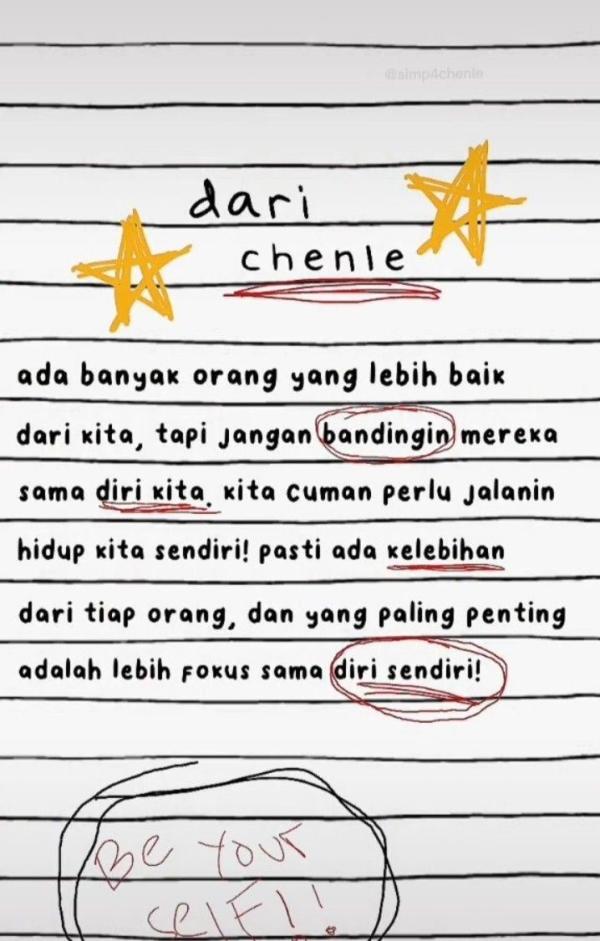 @simp4chenle
dari
chenle
ada banyak orang yang lebih baik
dari kita, tapi jangan bandingin mereka
sama diri kita. kita cuman perlu jalanin
hidup kita sendiri! pasti ada kelebihan
dari tiap orang, dan yang paling penting
adalah lebih fokus sama diri sendiri!
Be Your
self!!